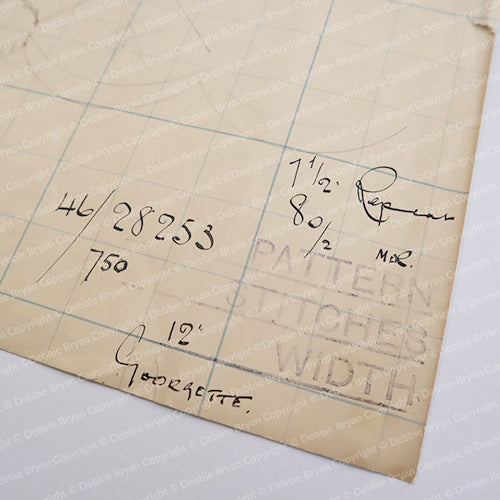 7 1/2" Repeat
46/28253
80/2 M&R.
750
PATTERN
STITCHES
12"
WIDTH
GEORGETTE.
© Debbie Bryan Copyright © Debbie Bryan Copyright